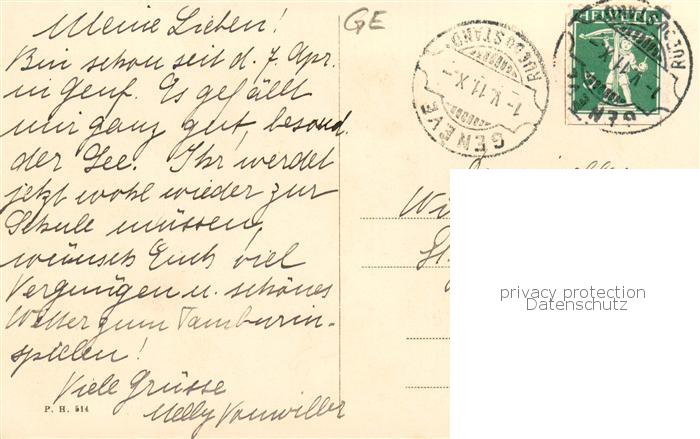 Meine Lieben!
Bin schon seit d. 7. Apr.
in Genf. Es gefällt
mir ganz gut, besond.
der See. Ihr werdet
jetzt wohl wieder zur
Schule müssen,
wünsch Euch viel
Vergnügen u. schönes
Wetter zum Tamburin-
spielen!
Viele Grüsse
Nelly Vonwiller
P. H. 514
GE
GENEVE
1-V.11.X-
RUE DU STAND
HELVETIA
privacy protection
Datenschutz